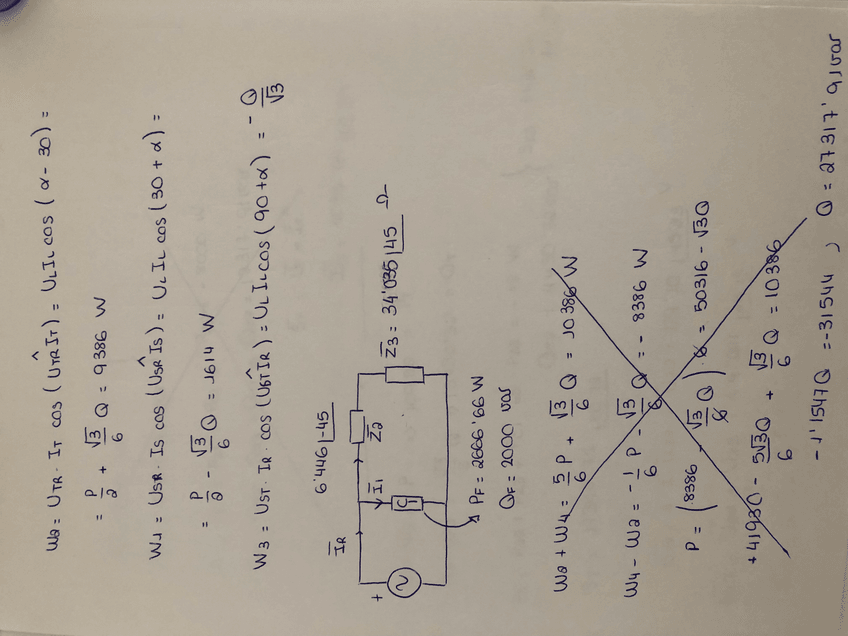 W2 = UTR · IT cos (UTR^IT) = UL IL cos (α - 30) =
= P/2 + √3/6 Q = 9386 W
W1 = USR · IS cos (USR^IS) = UL IL cos (30 + α) =
= P/2 - √3/6 Q = 1614 W
W3 = UST · IR · cos (UST^IR) = UL IL cos (90 + α) = - Q/√3
6'446 |-45
Z2
Z3 = 34'035 |45 Ω
IR
I1
+
PF = 2666'66 W
QF = 2000 var
W2 + W4 = 5/6 P + √3/6 Q = 10386 W
W4 - W2 = -1/6 P - √3/6 Q = - 8386 W
P = (8386 - √3/6 Q) · 6 = 50316 - √3Q
+41930 - 5√3Q/6 + √3/6 Q = 10386
-1'1547Q = -31544 , Q = 27317'91 var